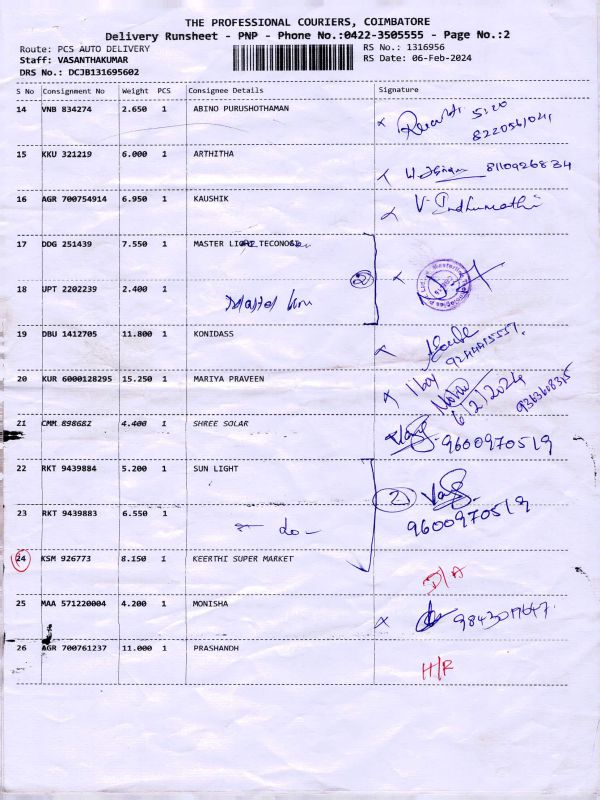 THE PROFESSIONAL COURIERS, COIMBATORE
Delivery Runsheet - PNP - Phone No.:0422-3505555 - Page No.:2
Route: PCS AUTO DELIVERY RS No.: 1316956
Staff: VASANTHAKUMAR RS Date: 06-Feb-2024
DRS No.: DCJB131695602
S No Consignment No Weight PCS Consignee Details Signature
14 VNB 834274 2.650 1 ABINO PURUSHOTHAMAN
5:20
15 KKU 321219 6.000 1 ARTHITHA
8110926834
16 AGR 700754914 6.950 1 KAUSHIK
V. Indhumathi
17 DDG 251439 7.550 1 MASTER
2
18 UPT 2202239 2.400 1
19 DBU 1412705 11.800 1 KONIDASS
20 KUR 6000128295 15.250 1 MARIYA PRAVEEN
6/2/2024
21 CMM 898682 4.400 1 SHREE SOLAR
9600970519
22 RKT 9439884 5.200 1 SUN LIGHT
2
23 RKT 9439883 6.550 1
- do -
9600970519
24 KSM 926773 8.150 1 KEERTHI SUPER MARKET
D/A
25 MAA 571220004 4.200 1 MONISHA
26 AGR 700761237 11.000 1 PRASHANDH
H/R